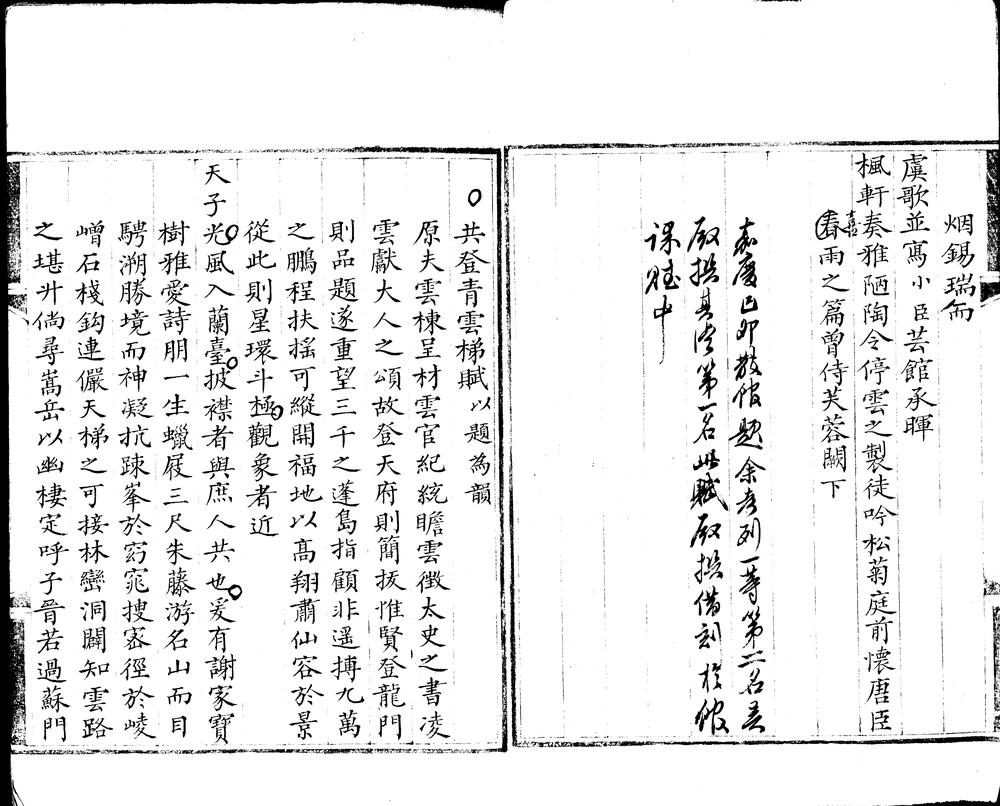 烟錫瑞而
虞歌並寫小臣芸館承暉
楓軒奏雅陋陶令停雲之製徒吟松菊庭前懷唐臣
喜
春雨之篇曾侍芙蓉闕下
嘉慶己卯散館題余考列一等第二名吳
殿撰其濬第一名此賦殿撰借刻於館
課賦中
共登青雲梯賦以題為韻
原夫雲棟呈材雲官紀統瞻雲徵太史之書凌
雲獻大人之頌故登天府則簡拔惟賢登龍門
則品題遂重望三千之蓬島指顧非遥摶九萬
之鵬程扶搖可縱開福地以高翔肅仙容於景
從此則星環斗極觀象者近
天子光風入蘭臺披襟者與庶人共也爰有謝家寶
樹雅愛詩朋一生蠟屐三尺朱藤游名山而目
騁溯勝境而神凝抗疎峯於窈窕搜宻徑於崚
嶒石棧鈎連儼天梯之可接林巒洞闢知雲路
之堪升倘尋嵩岳以幽棲定呼子晉若過蘇門